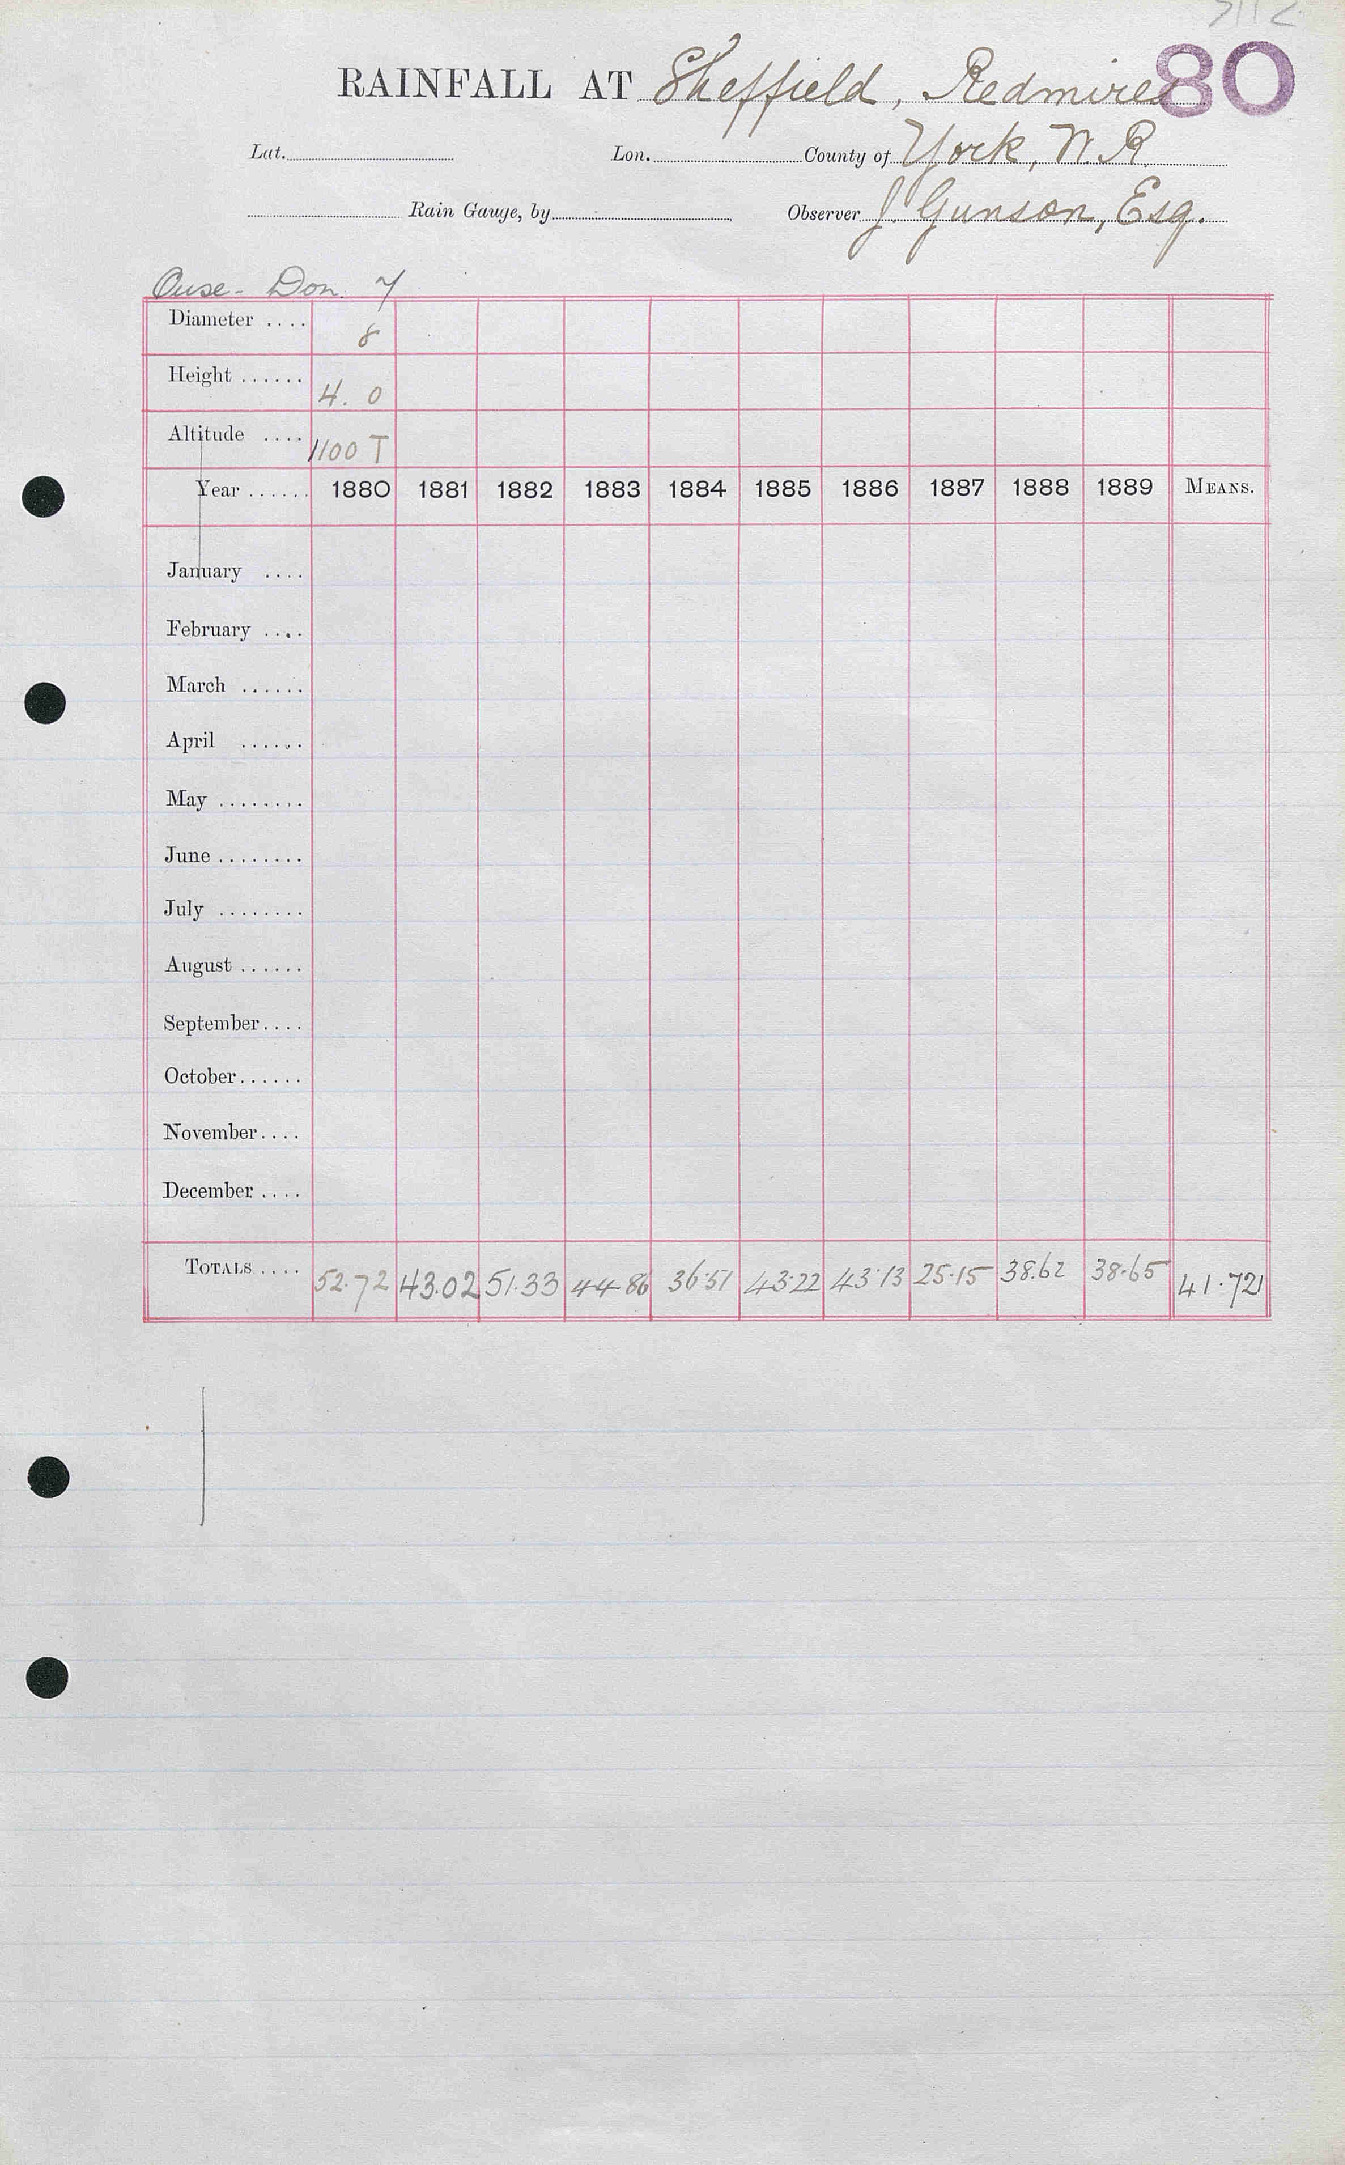 80
RAINFALL AT Sheffield, Redmires
Lat. Lon. County of York, W.R.
Rain Gauge, by Observer J. Gunson, Esq.
Ouse - Don. 7
Diameter .... 8
Height ...... 4. 0
Altitude .... 1100 T
Year ...... 1880 1881 1882 1883 1884 1885 1886 1887 1888 1889 MEANS.
January ....
February ....
March ......
April ......
May ........
June ........
July ........
August ......
September ....
October ......
November ....
December ....
TOTALS .... 52.72 43.02 51.33 44.86 36.51 43.22 43.13 25.15 38.62 38.65 41.721